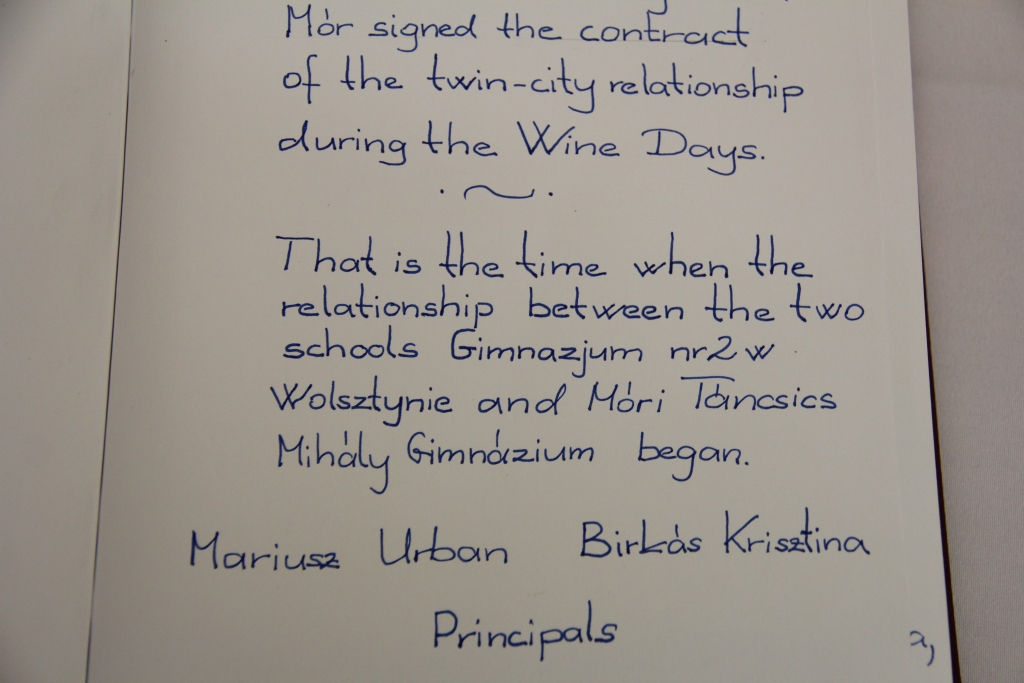 Mór signed the contract
of the twin-city relationship
during the Wine Days.
That is the time when the
relationship between the two
schools Gimnazjum nr2 w
Wolsztynie and Móri Táncsics
Mihály Gimnázium began.
Mariusz Urban Birkás Krisztina
Principals